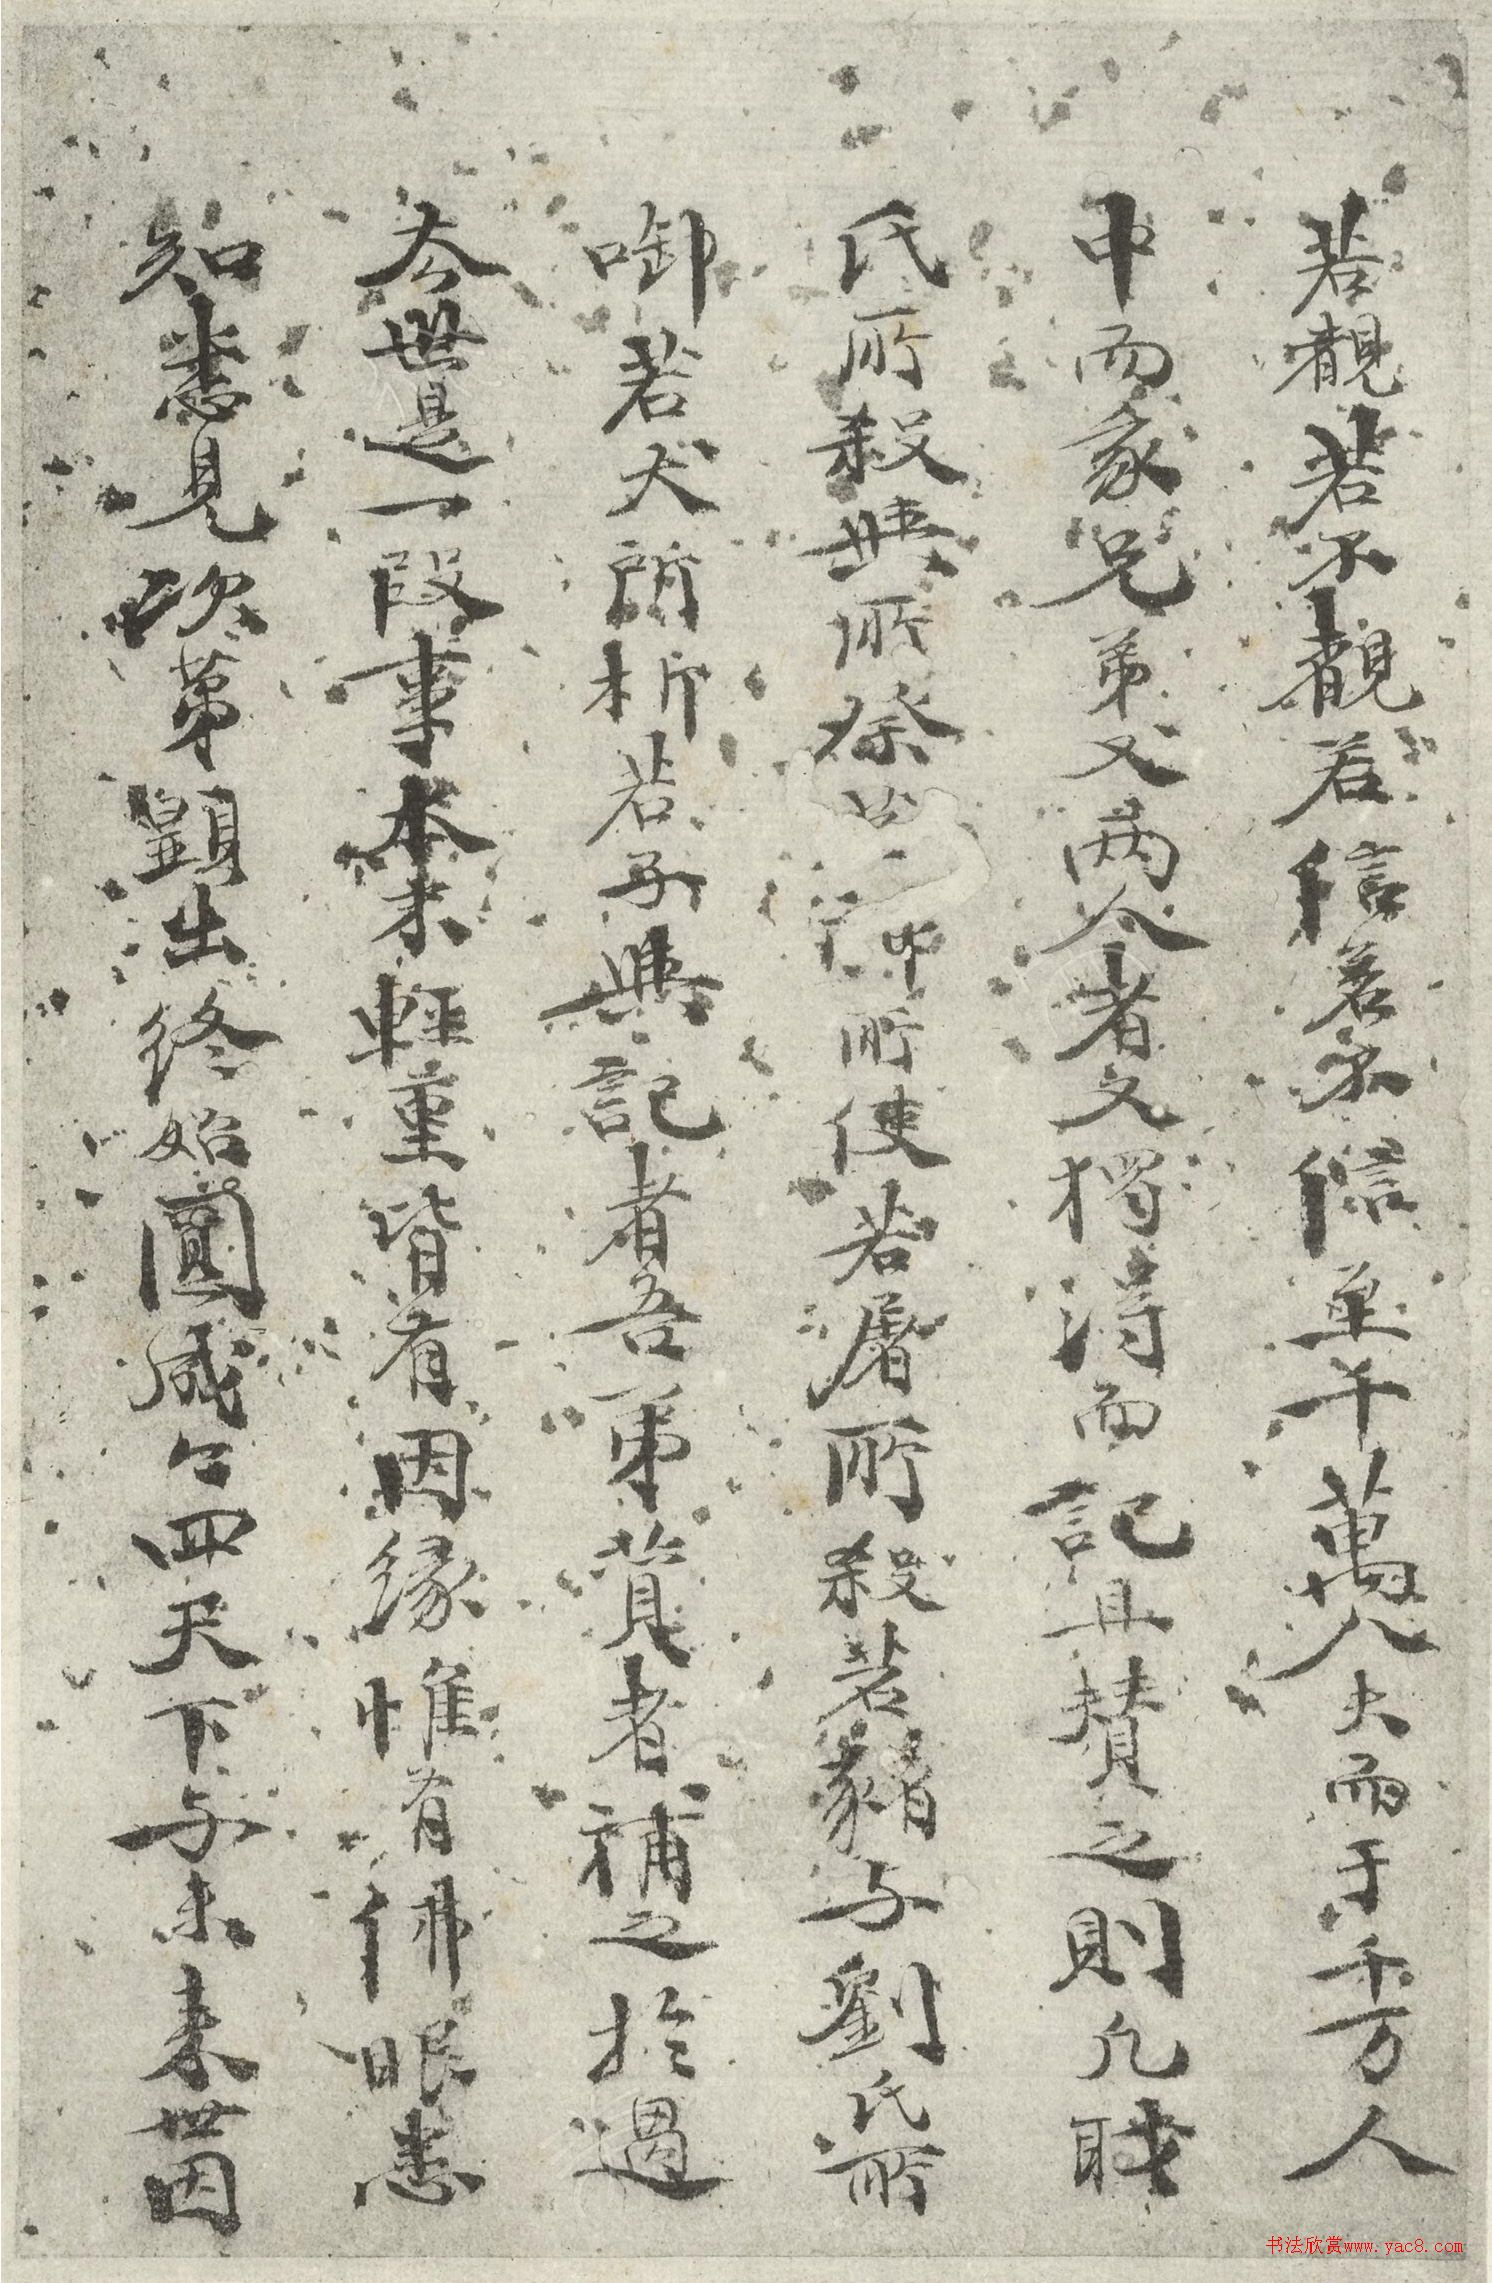 若覩若不覩若信若不信至千萬人大而于千万人
中而兄弟又两人者又獨淂而記且賛之則凢
氏所殺與所祭所使若屠所殺若豬与劉氏所
啣若犬所析若子與記者吾弟賛者補之於過
去世是一段事本末輕重皆有因緣惟有佛眼悉
知悉見次第顯出終始圓成四天下与未来世因
书法欣赏www.yac8.com